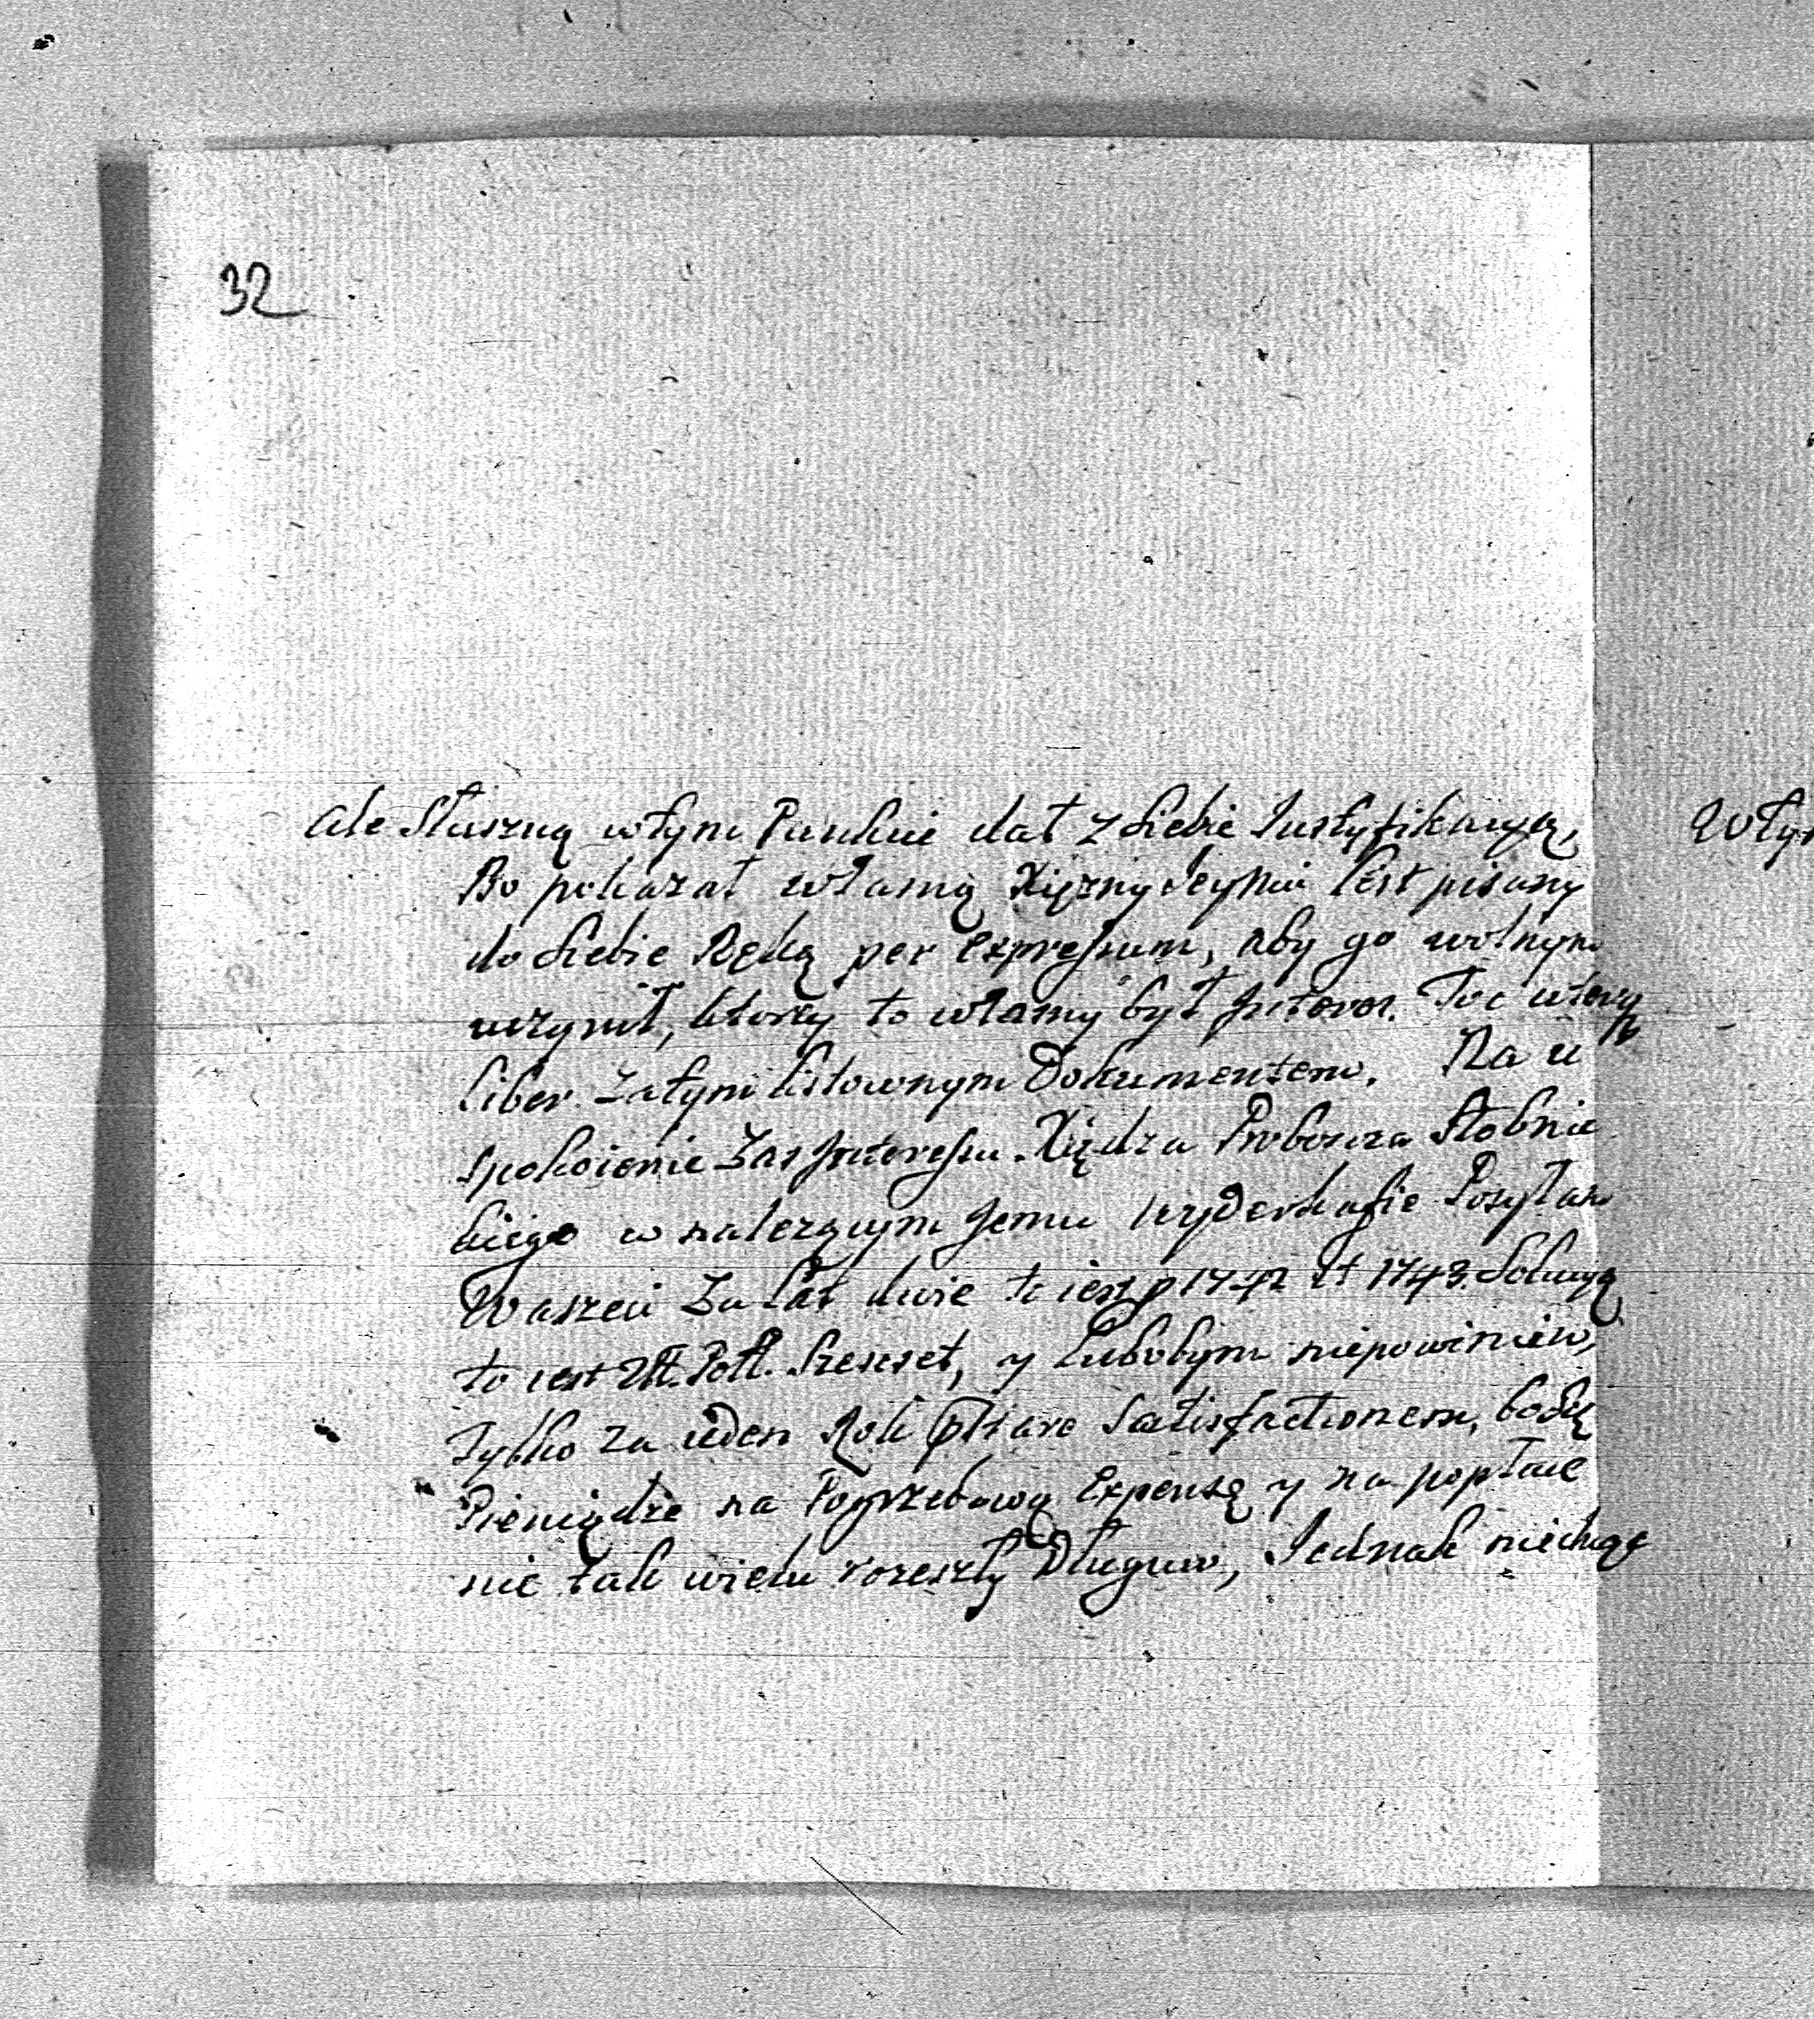 32
ale Słuszną wtym Punkcie dał z siebie Iustyfikacyą,
Bo pokazał własną Xiężny Ieymci List pisany
do siebie Ręką per expressum, aby go wolnym
uczynił, ktory to własny był Interes.
liber zatym listownym Dokumentem. Na u
spokoienie Zas Interessu Xiędza Proboszcza Stobnic
kiego w nalezącym Jemu wyderkafie Posyłam
Waszeci Za Lat dwie to iest p 1742 et 1743. Solucyą
to iest Złł. Poll. Szesset, y lubobym niepowinien,
Tylko za ieden Rok Satisfactionem, bo
Pieniądze na Pogrzebową Expensę y na popłace
nie tak wielu rozeszły Długuw, Jednak niechcąc
Wtym